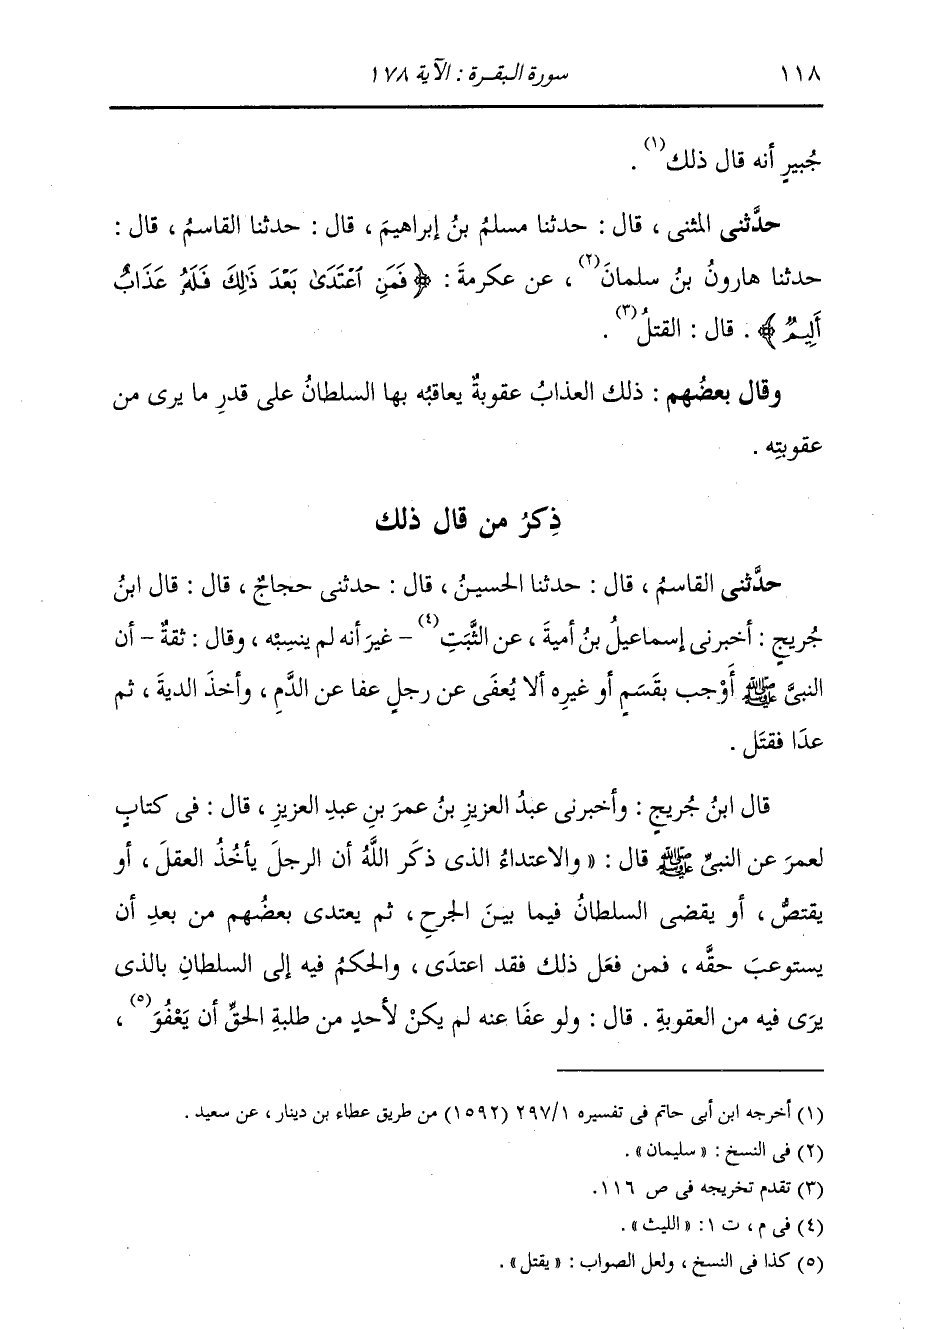 ١١٨ سورة البقرة : الآية ١٧٨
جُبيرٍ أنه قال ذلك(١) .
حدَّثنى المثنى ، قال : حدثنا مسلمُ بنُ إبراهيمَ ، قال : حدثنا القاسمُ ، قال :
حدثنا هارونُ بنُ سلمانَ(٢) ، عن عكرمةَ : ﴿ فَمَنِ ٱعْتَدَىٰ بَعْدَ ذَٰلِكَ فَلَهُۥ عَذَابٌ
أَلِيمٌ ﴾ . قال : القتلُ(٣) .
وقال بعضُهم : ذلك العذابُ عقوبةٌ يعاقبُه بها السلطانُ على قدرِ ما يرى من
عقوبتِه .
ذِكرُ من قال ذلك
حدَّثنى القاسمُ ، قال : حدثنا الحسينُ ، قال : حدثنى حجاجٌ ، قال : قال ابنُ
جُريجٍ : أخبرنى إسماعيلُ بنُ أميةَ ، عن الثَّبَتِ(٤) - غيرَ أنه لم ينسِبْه ، وقال : ثقةٌ - أن
النبىَّ ﷺ أَوْجب بقَسَمٍ أو غيرِه ألا يُعفَى عن رجلٍ عفا عن الدَّمِ ، وأخذ الديةَ ، ثم
عدَا فقتَل .
قال ابنُ جُريجٍ : وأخبرنى عبدُ العزيزِ بنُ عمرَ بنِ عبدِ العزيزِ ، قال : فى كتابٍ
لعمرَ عن النبىِّ ﷺ قال : « والاعتداءُ الذى ذكَر اللَّهُ أن الرجلَ يأخُذُ العقلَ ، أو
يقتصُّ ، أو يقضى السلطانُ فيما بينَ الجرحِ ، ثم يعتدى بعضُهم من بعدِ أن
يستوعبَ حقَّه ، فمن فعَل ذلك فقد اعتدَى ، والحكمُ فيه إلى السلطانِ بالذى
يرَى فيه من العقوبةِ . قال : ولو عفَا عنه لم يكنْ لأحدٍ من طلبةِ الحقِّ أن يَعْفُوَ(٥) ،
(١) أخرجه ابن أبى حاتم فى تفسيره ٢٩٧/١ (١٥٩٢) من طريق عطاء بن دينار ، عن سعيد .
(٢) فى النسخ : « سليمان » .
(٣) تقدم تخريجه فى ص ١١٦.
(٤) فى م ، ت ١: « الليث » .
(٥) كذا فى النسخ ، ولعل الصواب : « يقتل » .